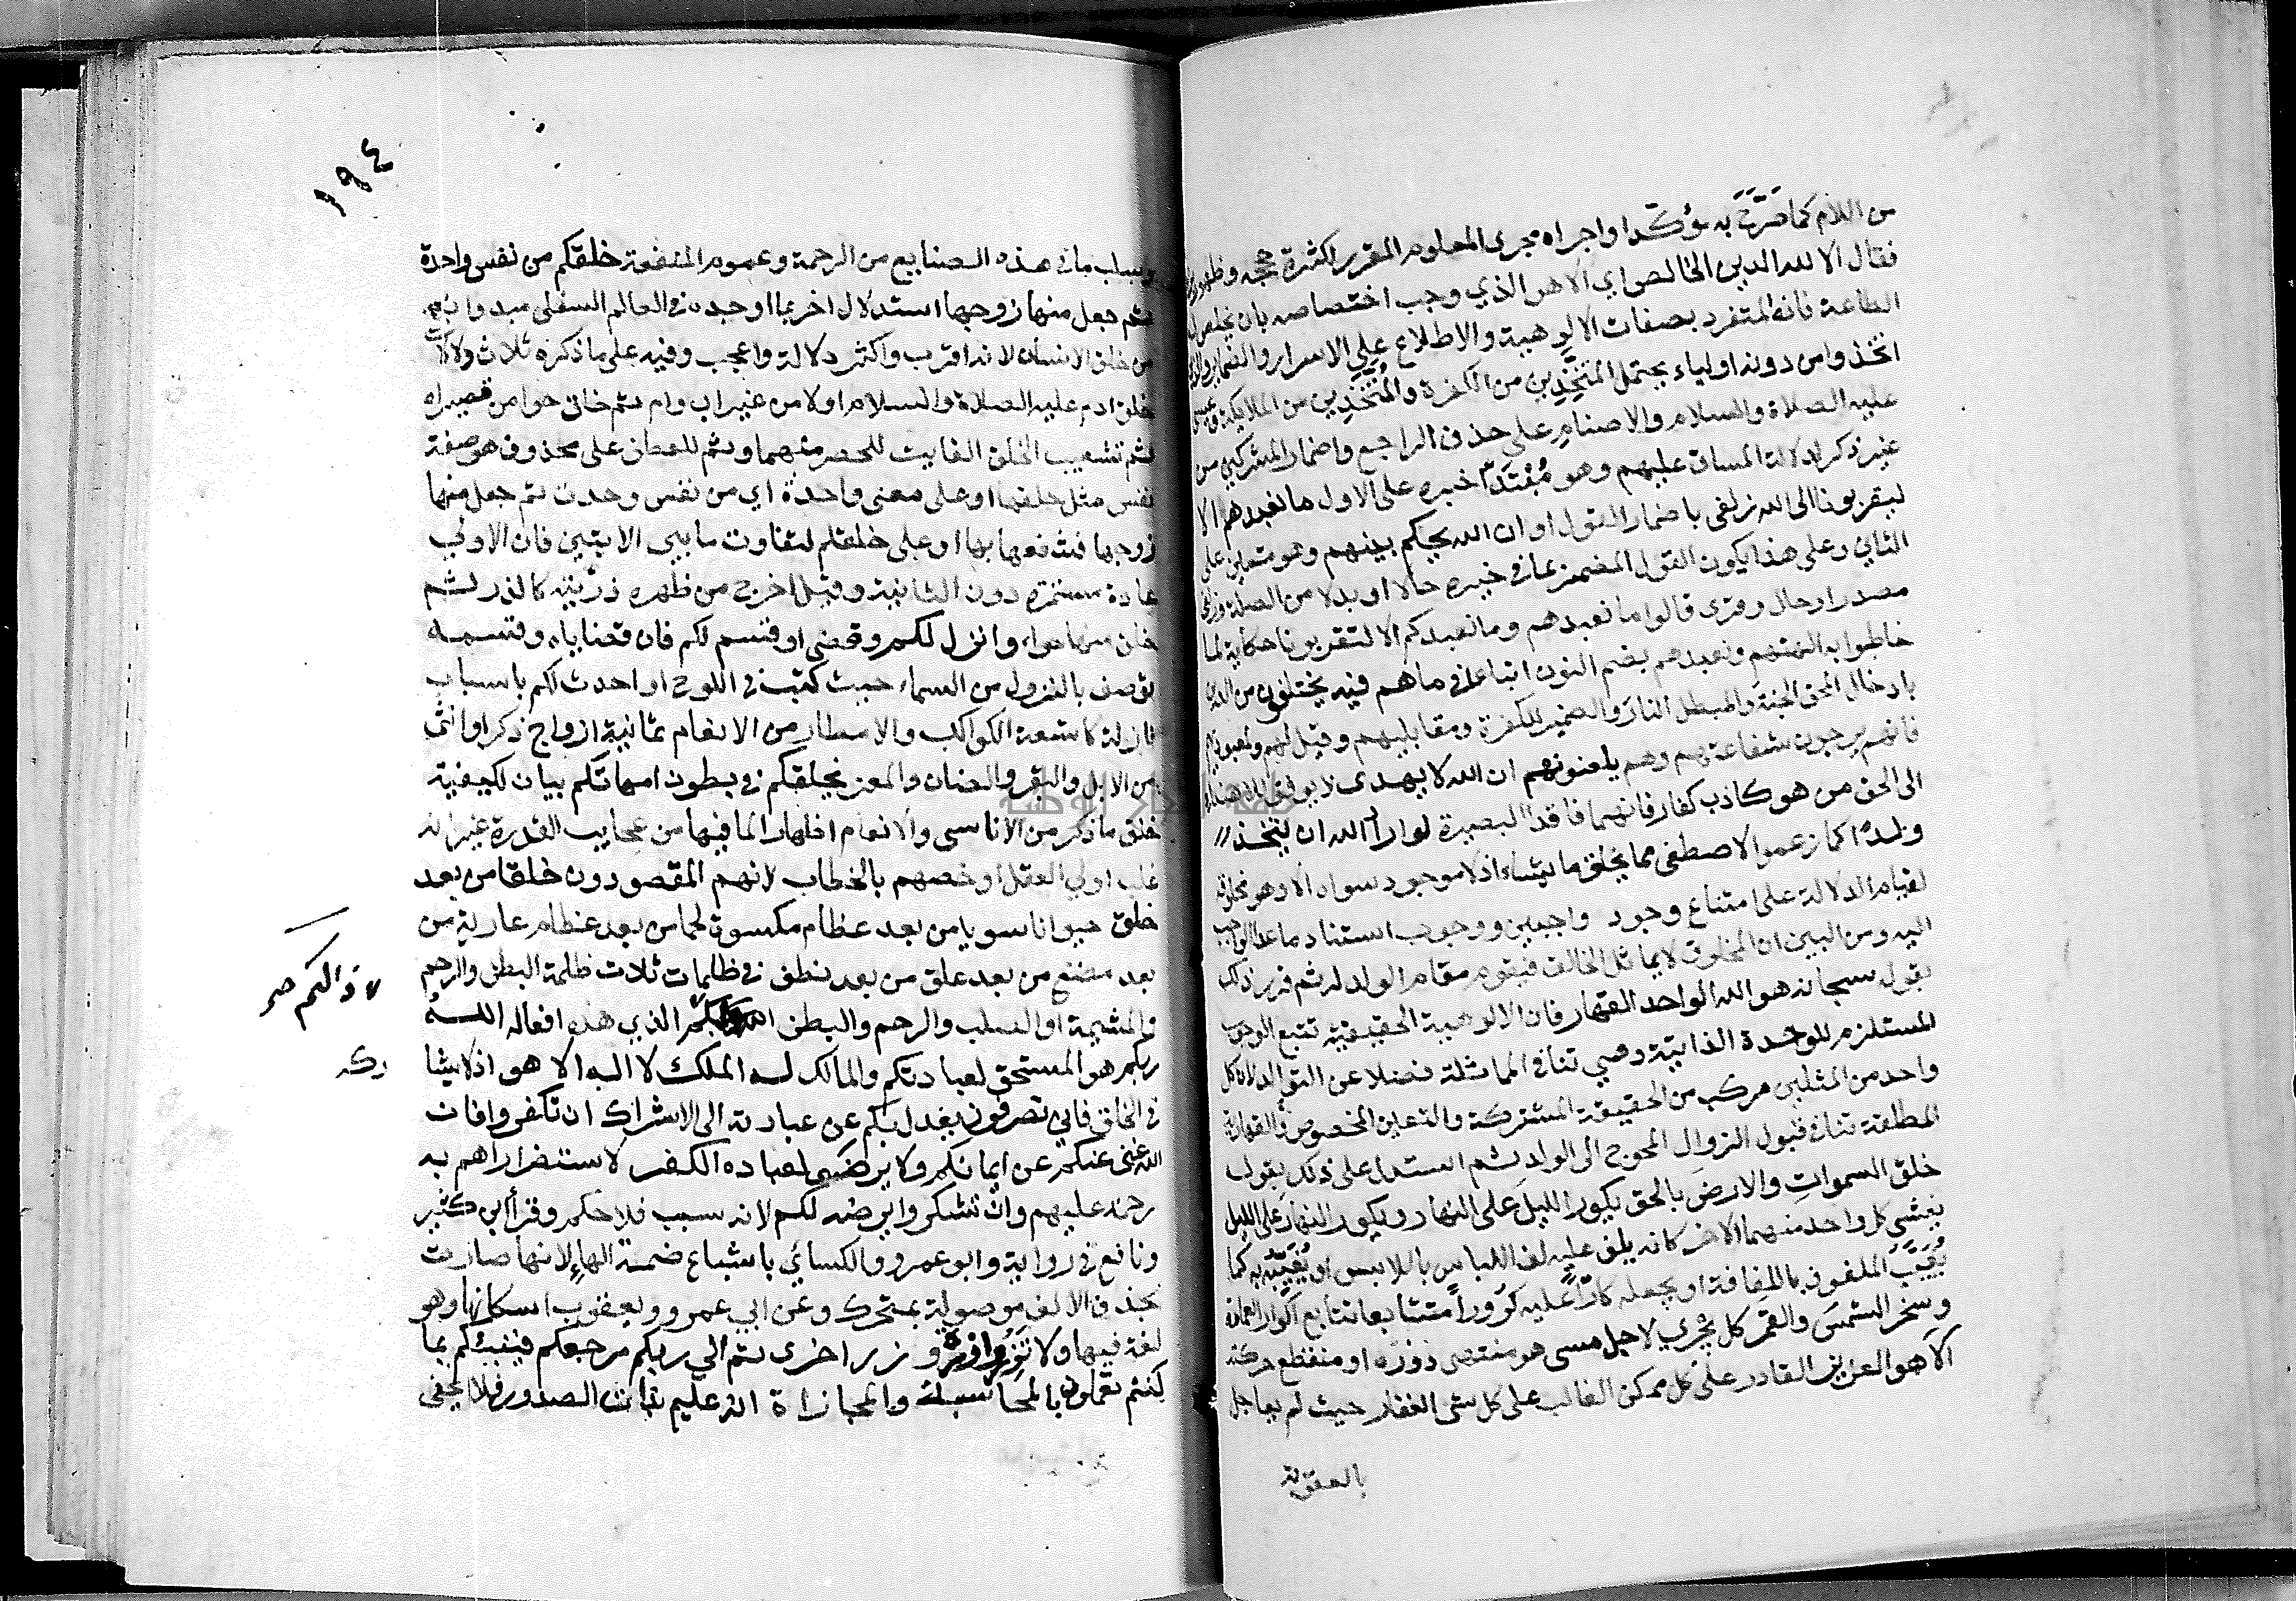 من اللام كما صَرَّحَ به مؤكّدا واجراه مجرى المعلوم المقرر لكثرة حججه وظهور
فقال الا لله الدين الخالص اي الا هو الذي وجب اختصاصه بان يخلص له
الطاعة فانه المتفرد بصفات الالوهية والاطلاع علي الاسرار والضماير والذين
اتخذوا من دونه اولياء يحتمل المتخِذِين من الكفرة والمُتَّخَذِين من الملايكة وعيسى
عليه الصلاة والسلام والاصنام علي حذف الراجع واضمار المشركين من
غير ذكر لدلالة المساق عليهم وهو مُبْتَدَأ خبره على الاول ما نعبدهم الا
ليقربونا الى الله زلفى باضمار القول او ان الله يحكم بينهم وهو متعين على
الثاني وعلى هذا يكون القول المضمر بما في خبره حالا او بدلا من الصلة وزلفى
مصدر او حال وقرى قالوا ما نعبدهم وما نعبدكم الا لتقربونا حكاية لما
خاطبوا به الهتهم ونعبدهم بضم النون اتباعا في ما هم فيه يختلفون من الدين
بادخال المحق الجنة والمبطل النار والضمير للكفرة ومقابليهم وقيل لهم ولمعبوديهم
فانهم يرجون شفاعتهم وهم يلعنونهم ان الله لا يهدى لا يوفق للاهتداء
الى الحق من هو كاذب كفار فانهما فاقدا البصيرة لو اراد الله ان يتخذ
ولدًا كما زعموا لاصطفى مما يخلق ما يشاء اذ لا موجود سواه الا وهو مخلوقه
لقيام الدلالة على امتناع وجود واجبين ووجوب استناد ما عدا الواجب
اليه ومن البين ان المخلوق لا يماثل الخالق فيقوم مقام الولد له ثم قرر ذلك
بقوله سبحانه هو الله الواحد القهار فان الالوهية الحقيقية تتبع الوجوب
المستلزم للوحدة الذاتية وهي تنافي المماثلة فضلا عن التوالد لان كل
واحد من المثلين مركب من الحقيقة المشتركة والتعين المخصوص والقهارية
المطلقة تنافي قبول الزوال المحوج الى الولد ثم استدل على ذلك بقوله
خلق السموات والارض بالحق يكور الليل على النهار ويكور النهار على الليل
يغشي كل واحد منهما الاخر كانه يلف عليه لف اللباس باللابس او يُغَيِّبُه به كما
يُغَيَّب الملفوف باللفافة او يجعله كارًّا عليه كرورًا متتابعا تتابع اكوار العمامة
وسخر الشمس والقمر كل يجري لاجل مسمى هو منتهى دوره او منقطع حركته
الا هو العزيز القادر على كل ممكن الغالب على كل شى الغفار حيث لم يعاجل
بالعقوبة
١٩٤
وسلب ما في هذه الصنايع من الرحمة وعموم المنفعة خلقكم من نفس واحدة
ثم جعل منها زوجها استدلال اخر بما اوجده في العالم السفلى مبدوا به
من خلق الانسان لانه اقرب واكثر دلالة واعجب وفيه على ما ذكره ثلاث دلالات
خلق ادم عليه الصلاة والسلام اولا من غير اب وام ثم خلق حوا من قصيراه
ثم تشعيب الخلق الفايت للحصر منهما وثم للعطف على محذوف هو صفة
نفس مثل خلقها او على معنى واحدة اي من نفس وحدت ثم جعل منها
زوجها فشفعها بها او على خلقكم لتفاوت ما بين الايتين فان الاولي
عادة مستمرة دون الثانية وقيل اخرج من ظهره ذرّيته كالذر ثم
خلق منها حواء وانزل لكم وقضى او قسم لكم فان قضاياه وقسمه
توصف بالنزول من السماء حيث كتبت في اللوح او احدث لكم باسباب
نازلة كاشعة الكواكب والامطار من الانعام ثمانية ازواج ذكرا وانثى
من الابل والبقر والضان والمعز يخلقكم في بطون امهاتكم بيان لكيفية
خلق ما ذكر من الاناسى والانعام اظهارا لما فيها من عجايب القدرة غير انه
غلب اولي العقل او خصهم بالخطاب لانهم المقصودون خلقا من بعد
خلق حيوانا سويا من بعد عظام مكسوة لحما من بعد عظام عارية من
بعد مضغ من بعد علق من بعد نطف في ظلمات ثلاث ظلمة البطن والرحم
والمشيمة او الصلب والرحم والبطن الذي هذه افعاله الله
ذالكم صح
ربكم هو المستحق لعبادتكم والمالك له الملك لا اله الا هو اذ لا يشا
ركه
في الخلق فاني تصرفون يعدل بكم عن عبادته الى الاشراك ان تكفروا فان
الله غنى عنكم عن ايمانكم ولا يرضى لعباده الكفر لاستضرارهم به
رحمة عليهم وان تشكروا يرضه لكم لانه سبب فلاحكم وقرأ ابن كثير
ونافع في رواية وابو عمرو والكسائي باشباع ضمة الهاءِ لانها صارت
بحذف الالف موصولة بمتحرك وعن ابي عمرو ويعقوب اسكانها وهو
لغة فيها ولا تَزِرُ وازرة وزر اخرى ثم الي ربكم مرجعكم فينبئكم بما
كنتم تعملون بالمحاسبة والمجازاة انه عليم بذات الصدور فلا يخفى